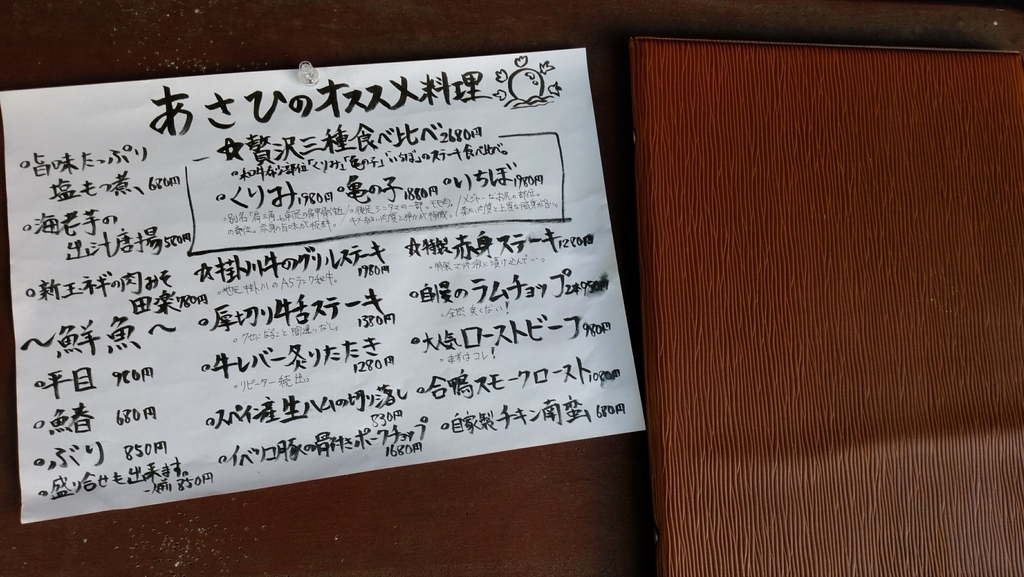 あさひのオススメ料理
★贅沢三種食べ比べ 2680円
・和牛希少部位「くりみ」「亀の子」「いちぼ」のステーキ食べ比べ。
・くりみ 1980円 ・亀の子 1880円 ・いちぼ 1980円
・旨味たっぷり
塩もつ煮 680円
・海老芋の
出汁唐揚 580円
・新玉ネギの肉みそ
田楽 780円
〜鮮魚〜
・平目 980円
・鰆 680円
・ぶり 850円
・盛り合せも出来ます。
一人前 850円
★掛川牛のグリルステーキ
1780円
・厚切り牛舌ステーキ
1380円
・クセになること間違いなし。
・牛レバー炙りたたき
1280円
・リピーター続出。
・スペイン産生ハムの切り落し
830円
・イベリコ豚の骨付きポークチョップ
1680円
★特製赤身ステーキ 1280円
・自慢のラムチョップ 2本980円
・全然臭くない!
・大人気ローストビーフ 980円
・まずはコレ!
・合鴨スモークロースト 1080円
・自家製チキン南蛮 680円